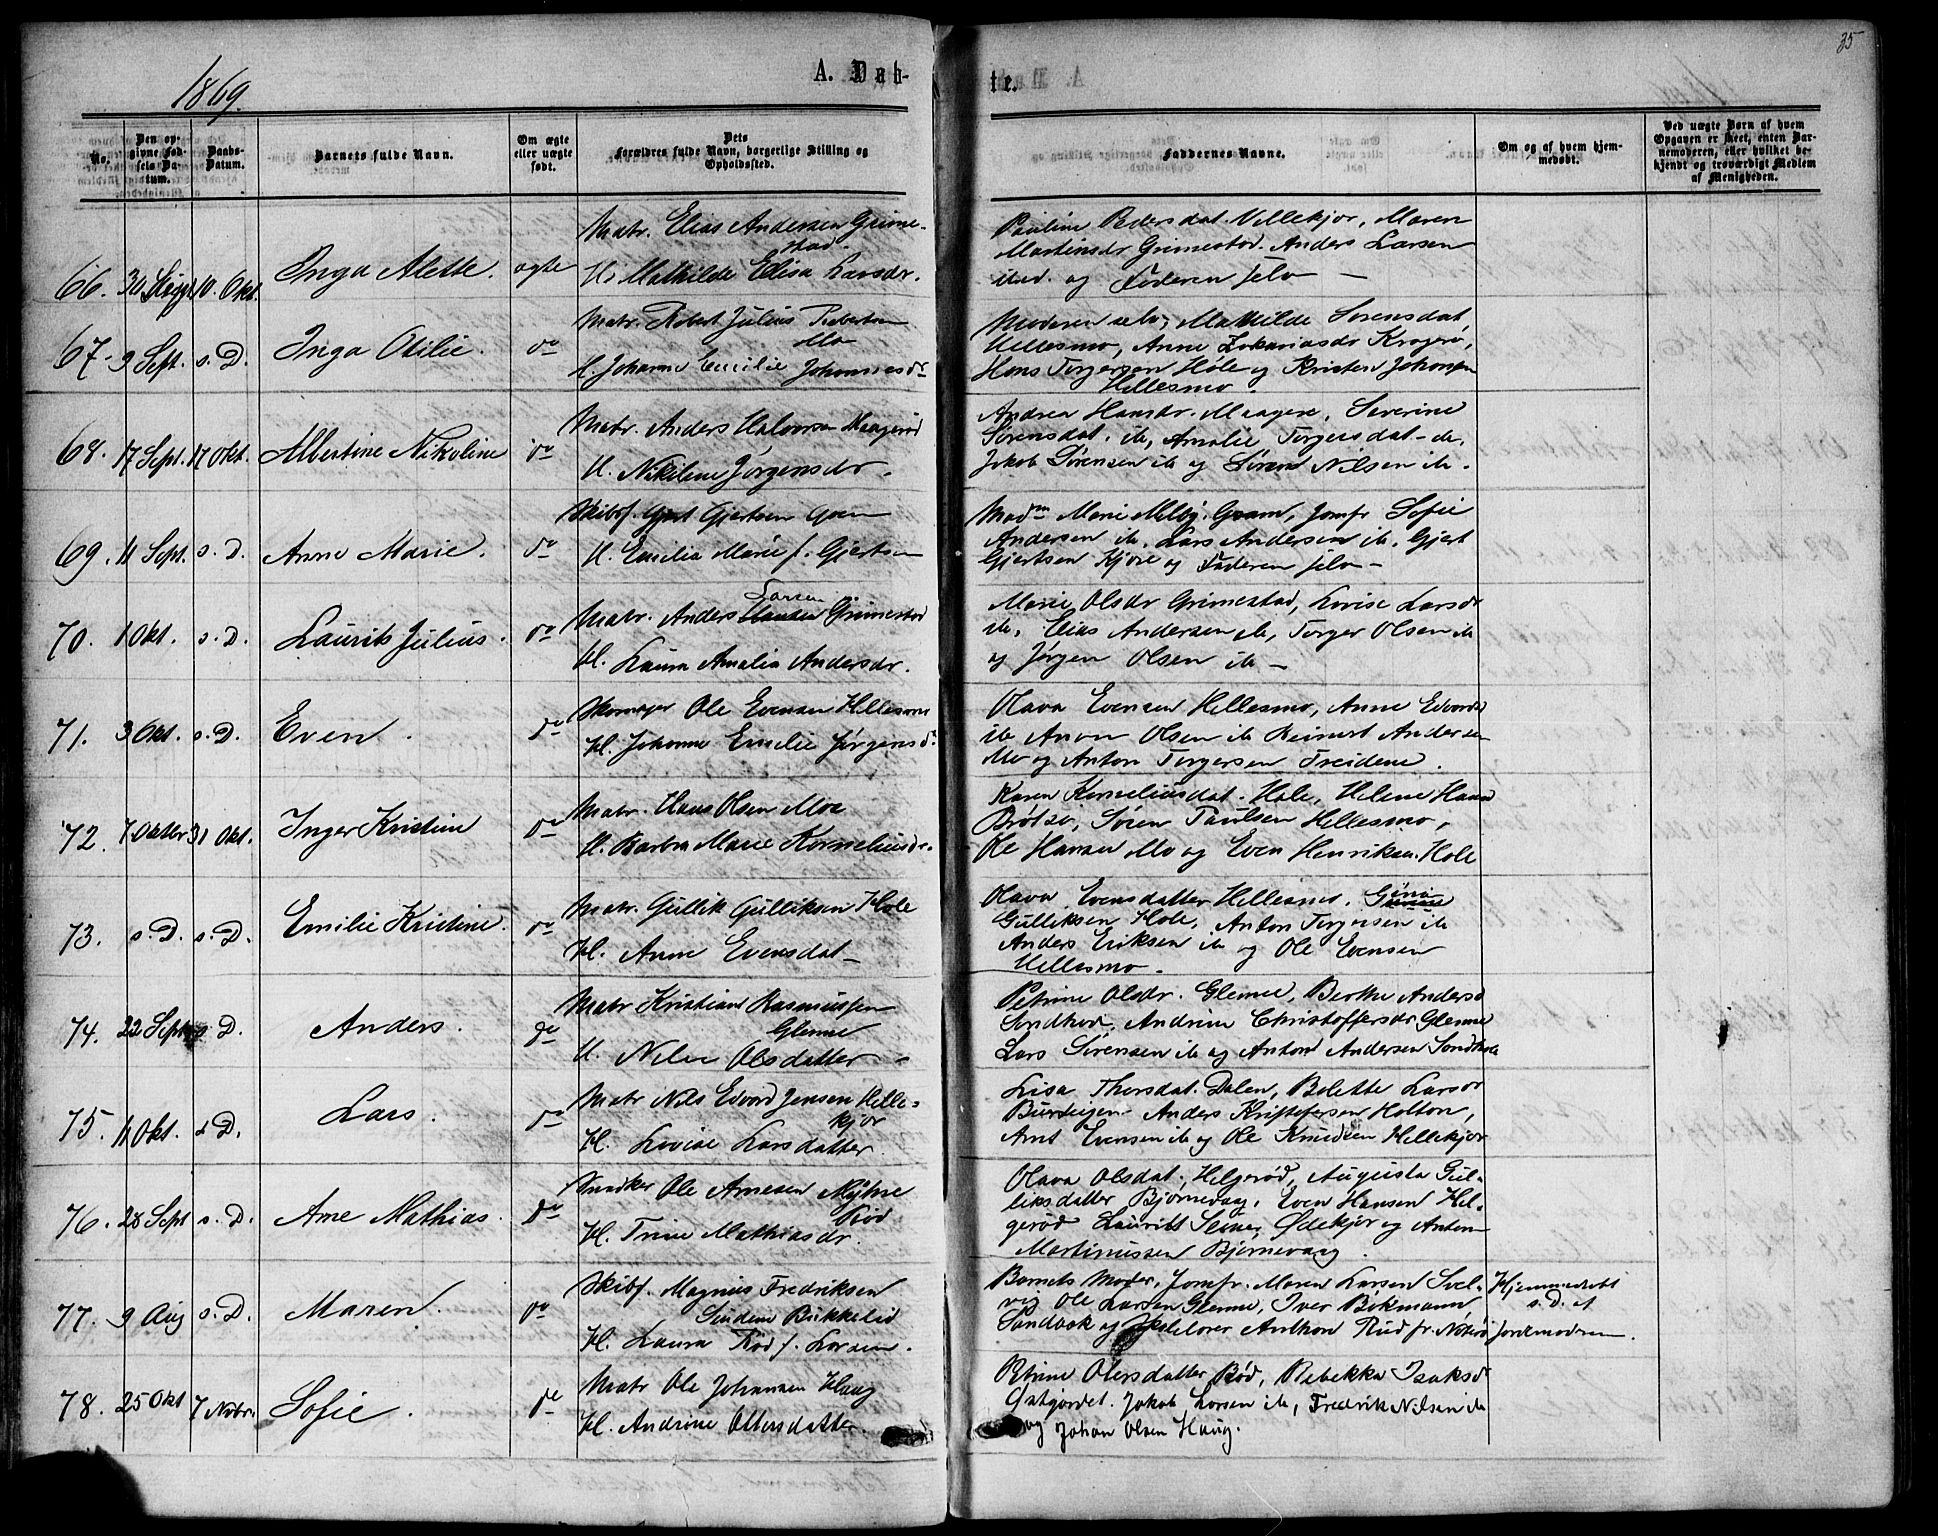 35
1869.
A. Døb-
te.
No.
Den op-
givne Fød-
sels Da-
tum.
Daabs-
Datum.
Barnets fulde Navn.
Om ægte
eller uægte
født.
Dets
Forældres fulde Navn, borgerlige Stilling og
Opholdssted.
Faddernes Navne.
Om og af hvem hjem-
medøbt.
Ved uægte Børn af hvem
Opgaven er skeet, enten Bar-
nemoderen, eller hvilket be-
kjendt og troværdigt Medlem
af Menigheden.
66. 10. Okt. Inga Alette. ægte
Matr. Elias Andersen Grime-
stad.
H. Mathilde Elisa Larsdr.
Pauline Pedersdat. Hellekjær, Maren
Martinsdr Grimestad. Anders Larsen
ibid. og Faderen selv —
67. 9 Sept. s. D. Inga Otilie. do
Matr. Robert Julius Robertsen
Mo
H. Johanne Emilie Johannesdr
Moderen selv, Mathilde Sørensdat
Hellesmo, Anne Zakariasdr Kragerø,
Hans Torgersen Hole og Kristen Johansen
Hellesmo.
68. 17 Sept. 17 Okt. Albertine Nikoline do
Matr. Anders Halvorsen Haagerød
H. Nikiline Jørgensdr.
Andrea Hansdr. Maagerø, Severine
Sørensdat. ib, Amalie Torgersdat ib.
Jakob Sørensen ib og Søren Nilsen ib.
69. 11 Sept. s. D. Anne Marie. do
Skibsf. Gjert Gjertsen Gøen
H. Emilia Marie f. Gjertsen
Madm Marie Melby. Gram, Jomfr Sofie
Andersen ib. Lars Andersen ib. Gjert
Gjertsen Kjøre og Faderen selv —
70. 1 Okt. s. D. Laurits Julius. do
Larsen
Matr. Anders Hansen Grimestad
H. Laura Amalia Andersdr.
Marie Olsdr Grimestad, Lovise Larsdr
ib, Elias Andersen ib, Torger Olsen ib
og Jørgen Olsen ib —
71. 3 Okt. s. D. Even. do
Skomager Ole Evensen Hellesmo
H. Johanne Emilie Jørgensdr
Olava Evensen Hellesmo, Anne Edvardsd
ib Anon Olsen ib Reinert Andersen
Mo og Anton Torgersen Treidene.
72. 7 Oktbr 31 Okt. Inger Kristine do
Matr. Hans Olsen Moe
H. Barbra Marie Korneliusdr.
Karen Korneliusdat. Hole, Helene Hansd
Brøtsø, Søren Paulsen Hellesmo,
Ole Hansen Mo og Even Henriksen Hole
73. s. D. s. D. Emilie Kristine. do
Matr. Gullik Gulliksen Hole
H. Anne Evensdat —
Olava Evensdatter Hellesmo,
Gulliksen Hole, Anton Torgersen ib
Anders Eriksen ib og Ole Evensen
Hellesmo.
74. 22 Sept s. D. Anders. do
Matr Kristian Rasmussen
Glenne
H. Nilie Olsdatter —
Petrine Olsdr. Glenne, Berthe Andersd
Sondhod, Andrine Christoffersdr Glenne
Lars Sørensen ib og Anton Andersen
75. 11 Okt. s D. Lars. do
Matr Nils Edvard Jensen Helle-
kjær
H. Lovise Larsdatter.
Lisa Thorsdat. Dalen, Bolette Larsdr
Anders Kristofersen Holton,
Arnt Evensen ib og Ole Knudsen Hellekjær
76. 28 Sept s. D. Arne Mathias. do
Snedker Ole Arnesen Myhre
Rød
H. Trine Mathiasdr.
Olava Olsdat. Helgerød, Augusta Gul-
liksdatter Bjørnevaag, Even Hansen Hel-
gerød Lauritt Ødekjær og Anton
Martinussen Bjørnevaag.
77. 9 Aug s. D. Maren. do
Skibsf. Magnus Fredriksen
Sundene Bukkelid
H. Laura Rød f. Larsen.
Barnets Moder, Jomfr. Maren Larsen Svel-
vig Ole Larsen Glenne, Iver Bøkmann
Sandbæk og Anthon Rud fr. Nøterø
Hjemmedøbt
s. D. af
Jordmodren.
78. 25 Okt 7 Novbr. Sofie. do
Matr Ole Johansen Haug
H. Andrine Ollersdatter.
Petrine Olersdatter Bød, Rebekka Isaksdr
Østgjordet. Jakob Larsen ib, Fredrik Nilsen ib
og Johan Olsen Haug.